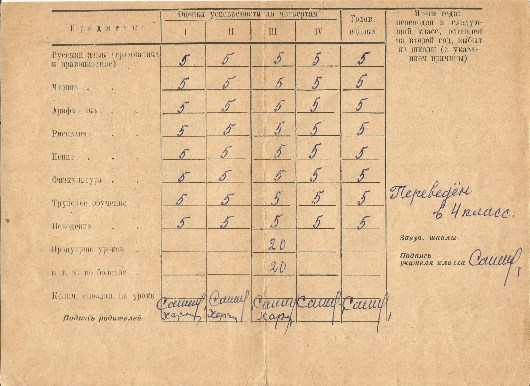 Предметы
Оценка успеваемости по четвертям
Годов. оценка
Итоги года:
переведен в следую-
щий класс, оставлен
на второй год, выбыл
из школы (с указа-
нием причины)
I II III IV
Русский язык (грамматика
и правописание) 5 5 5 5 5
Чтение 5 5 5 5 5
Арифметика 5 5 5 5 5
Рисование 5 5 5 5 5
Пение 5 5 5 5 5
Физкультура 5 5 5 5 5
Трудовое обучение 5 5 5 5 5
Поведение 5 5 5 5 5
Переведён
в 4 класс.
Пропущено уроков 20
в т. ч. по болезни 20
Завуч. школы
Подпись
учителя класса
Колич. опозданий на уроки
Подпись родителей